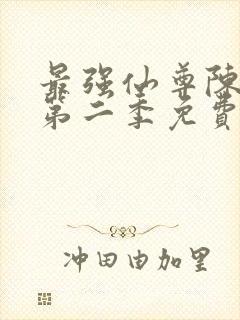 最强仙尊陈
第二季免費
冲田由加里